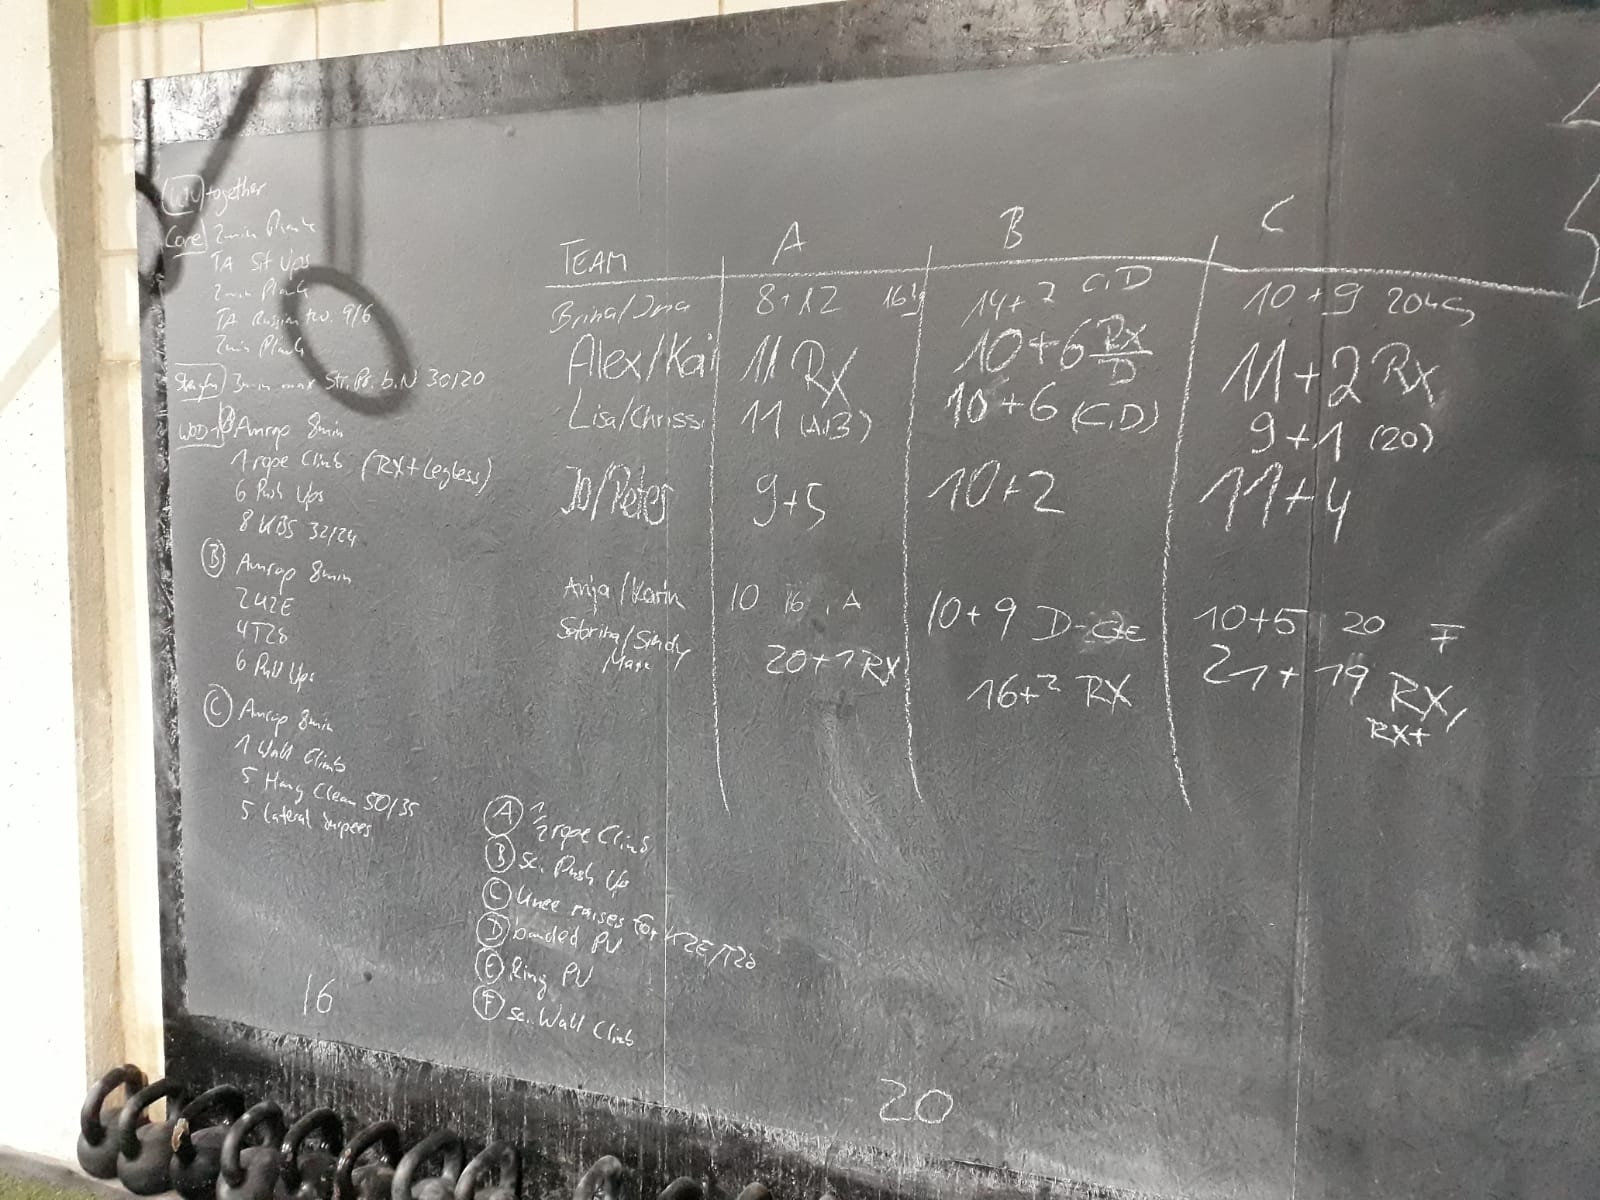 WU together
Core 2min Plank
TA Sit Ups
2min Plank
TA Russian tw. 9/6
2min Plank
3min max Str. Pr. b.N 30/20
WOD 1 A Amrap 8min
1 rope Climb (RX+ Legless)
6 Push Ups
8 KBS 32/24
B Amrap 8min
2 K2E
4 T2B
6 Pull Ups
C Amrap 8min
1 Wall Climb
5 Hang Clean 50/35
5 lateral burpees
16
TEAM A B C
Brina/Ima 8+12 16kg 14+2 C,D 10+9 20kg
Alex/Kai 11 Rx 10+6 Rx/D 11+2 Rx
Lisa/Chrissi 11 (A,B) 10+6 (C,D) 9+1 (20)
Jo/Peter 9+5 10+2 11+4
Anja/Karin 10 16, A 10+9 D- 10+5 20 F
Sabrina/Sindy 20+1 RX 16+2 RX 21+19 RX,
RX+
A 1/2 rope Climb
B sc. Push Up
C Knee raises for K2E/T2B
D banded PU
E Ring PU
F sc. Wall Climb
20